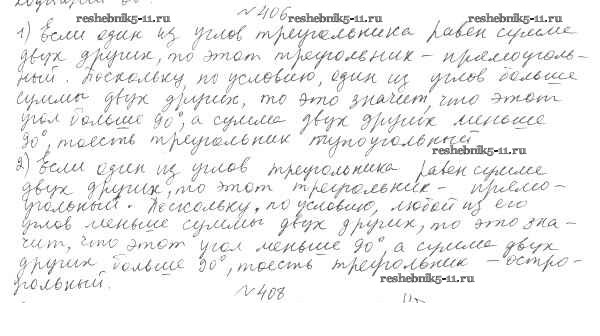 №406
reshebnik5-11.ru
1) Если один из углов треугольника равен сумме
двух других, то этот треугольник - прямоуголь-
ный. Поскольку, по условию, один из углов больше
суммы двух других, то это значит, что этот
угол больше 90°, а сумма двух других меньше
90°, тоесть треугольник тупоугольный
reshebnik5-11.ru
2) Если один из углов треугольника равен сумме
двух других, то этот треугольник - прямо-
угольный. Поскольку, по условию, любой из его
углов меньше суммы двух других, то это зна-
чит, что этот угол меньше 90°, а сумма двух
других больше 90°, тоесть треугольник - остро-
гольный.
reshebnik5-11.ru
№408